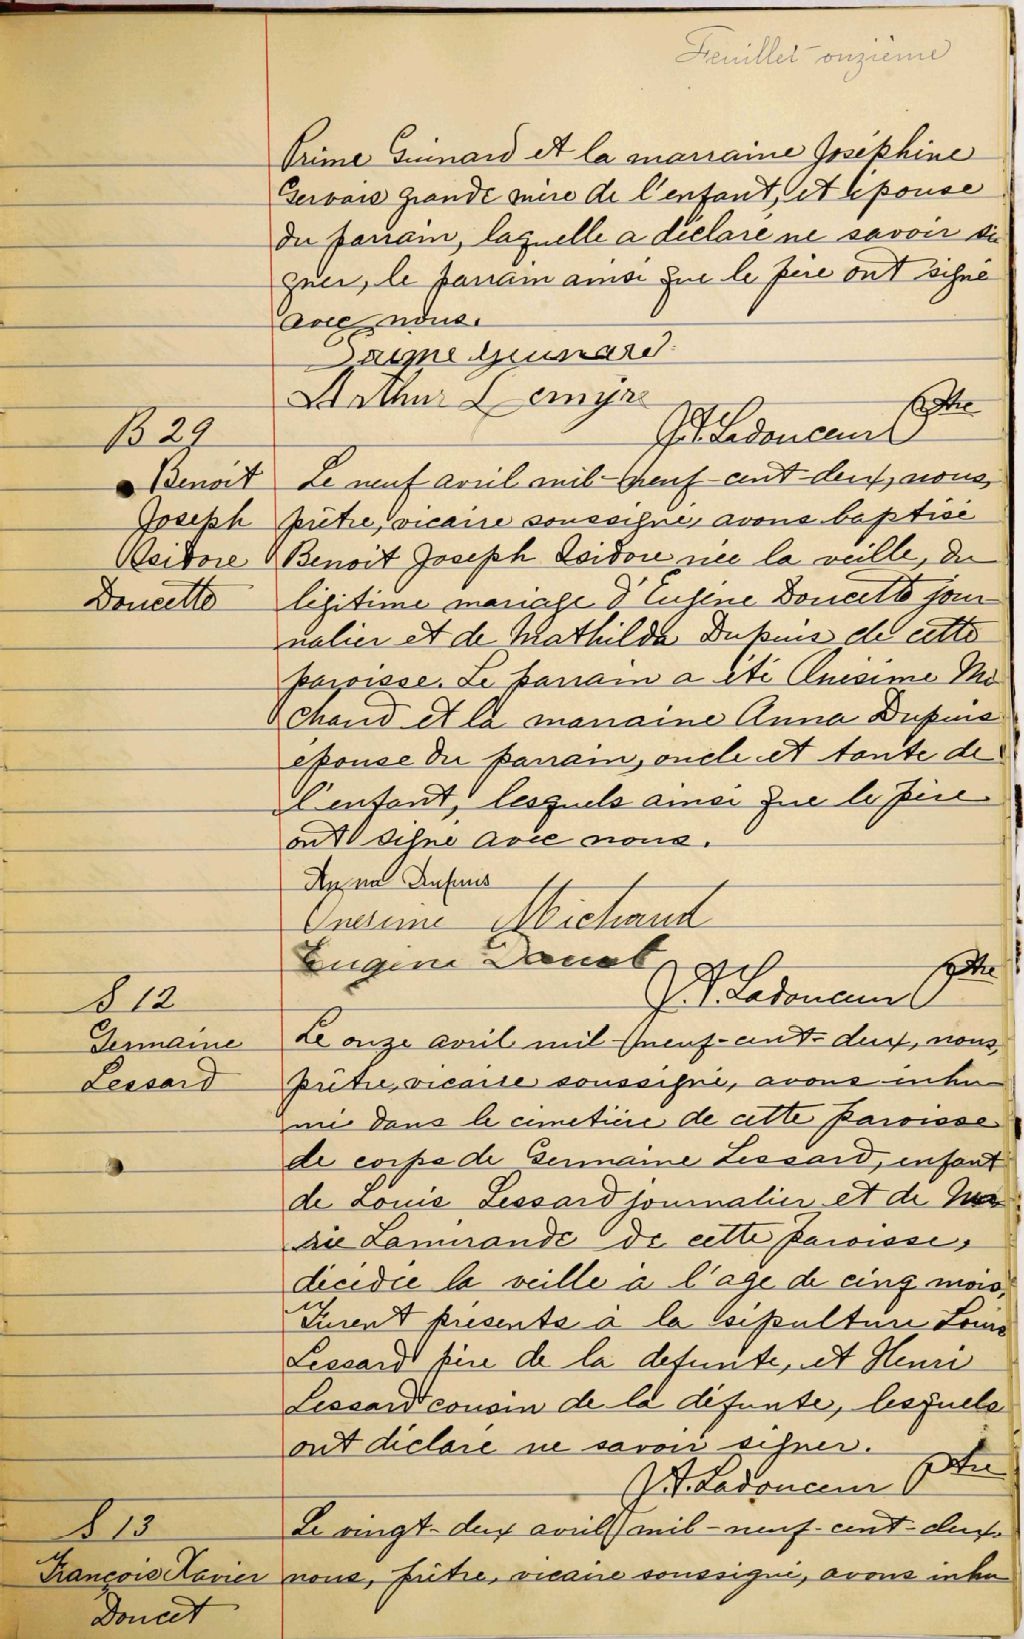 Feuillet onzième
Prime Guinard et la marraine Joséphine
Gervais grande mère de l'enfant, et épouse
du parrain, laquelle a déclaré ne savoir si
gner, le parrain ainsi que le père ont signé
avec nous.
Prime Guinard
Arthur Lemyre
J.A. Ladouceur Ptre
B 29
Benoit
Joseph
Isidore
Doucette
Le neuf avril mil-neuf-cent-deux, nous,
prêtre, vicaire soussigné, avons baptisé
Benoit Joseph Isidore née la veille, du
légitime mariage d'Eugène Doucette jour-
nalier et de Mathilda Dupuis de cette
paroisse. Le parrain a été Onésime Mi
chaud et la marraine Anna Dupuis
épouse du parrain, oncle et tante de
l'enfant, lesquels ainsi que le père
ont signé avec nous.
Anna Dupuis
Onesime Michaud
Eugène Doucet
J.A. Ladouceur Ptre
S 12
Germaine
Lessard
Le onze avril mil-neuf-cent-deux, nous,
prêtre, vicaire soussigné, avons inhu-
mé dans le cimetière de cette paroisse
de corps de Germaine Lessard, enfant
de Louis Lessard journalier et de Ma
rie Lamirande de cette paroisse,
décédée la veille à l'age de cinq mois,
Furent présents à la sépulture Louis
Lessard père de la defunte, et Henri
Lessard cousin de la défunte, lesquels
ont déclaré ne savoir signer.
J.A. Ladouceur Ptre
S 13
François Xavier
Doucet
Le vingt-deux avril mil-neuf-cent-deux
nous, prêtre, vicaire soussigné, avons inhu